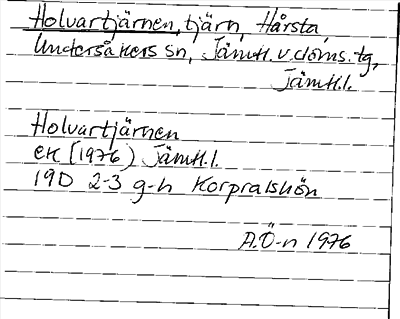 Holvartjärnen, tjärn, Hårsta,
Undersåkers sn, Jämtl. v. doms. tg,
Jämtl.l.
Holvartjärnen
ek (1976) Jämtl.l.
19D 2-3 g-h Korpralshön
A.Ö-n 1976